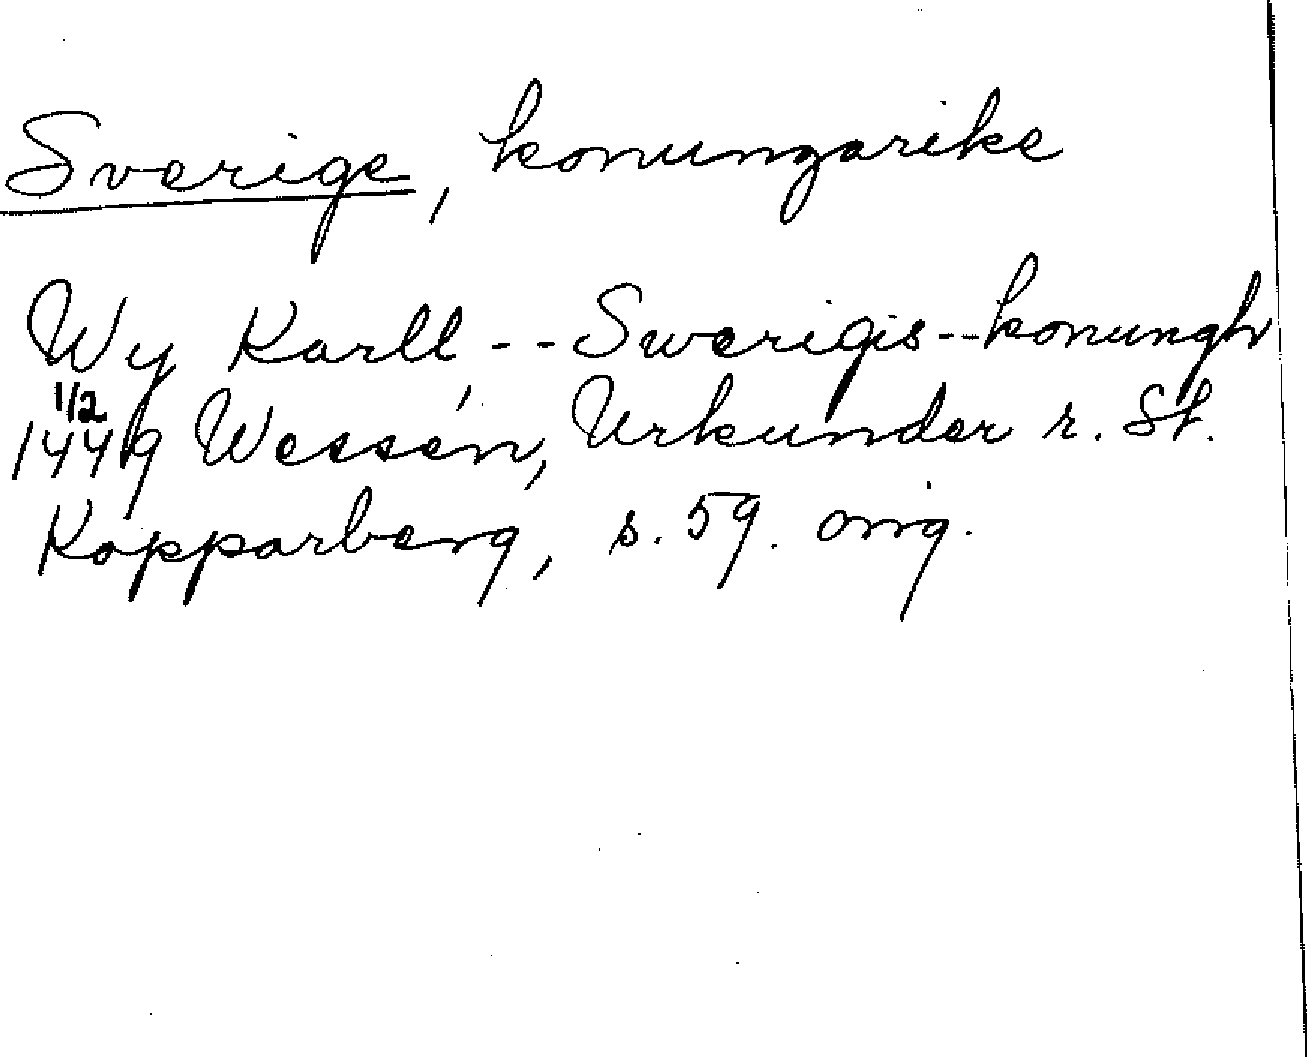 Sverige, konungarike
Wy Karll, -- Swerigis -- konungh
1/2
1449 Wessén, Urkunder r. St.
Kopparberg, s. 59. orig.